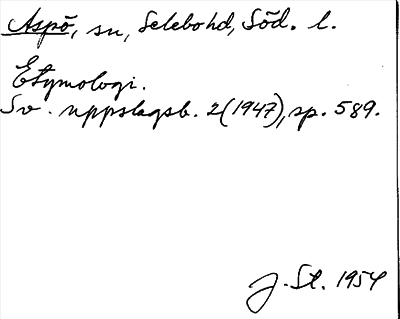 Aspö, sn, Selebohd, Söd. l.
Etymologi.
Sv. uppslagsb. 2(1947), sp. 589.
J. St. 1954